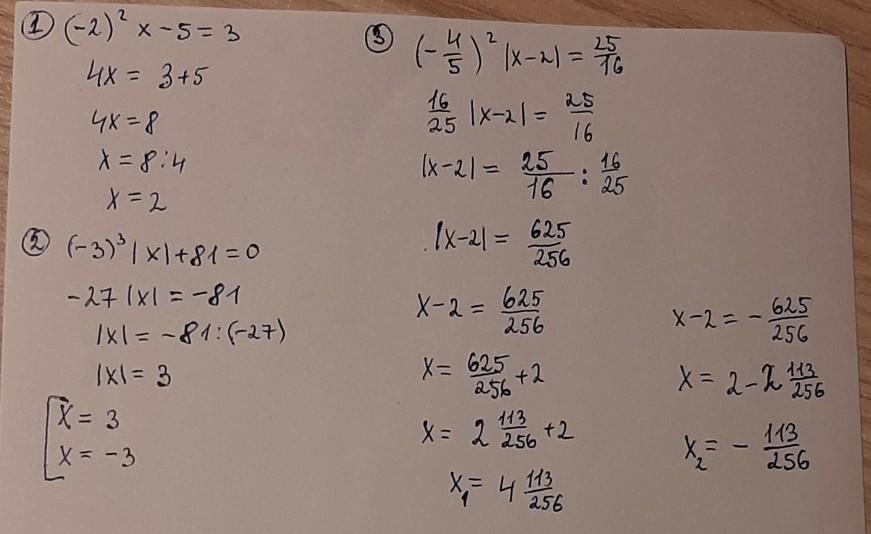 ① (-2)² x - 5 = 3
4x = 3+5
4x = 8
x = 8:4
x = 2
② (-3)³ |x| + 81 = 0
-27 |x| = -81
|x| = -81:(-27)
|x| = 3
[ x = 3
x = -3
③ (-4/5)² |x-2| = 25/16
16/25 |x-2| = 25/16
|x-2| = 25/16 : 16/25
|x-2| = 625/256
x-2 = 625/256
x = 625/256 + 2
x = 2 113/256 + 2
x₁ = 4 113/256
x-2 = - 625/256
x = 2 - 2 113/256
x₂ = - 113/256